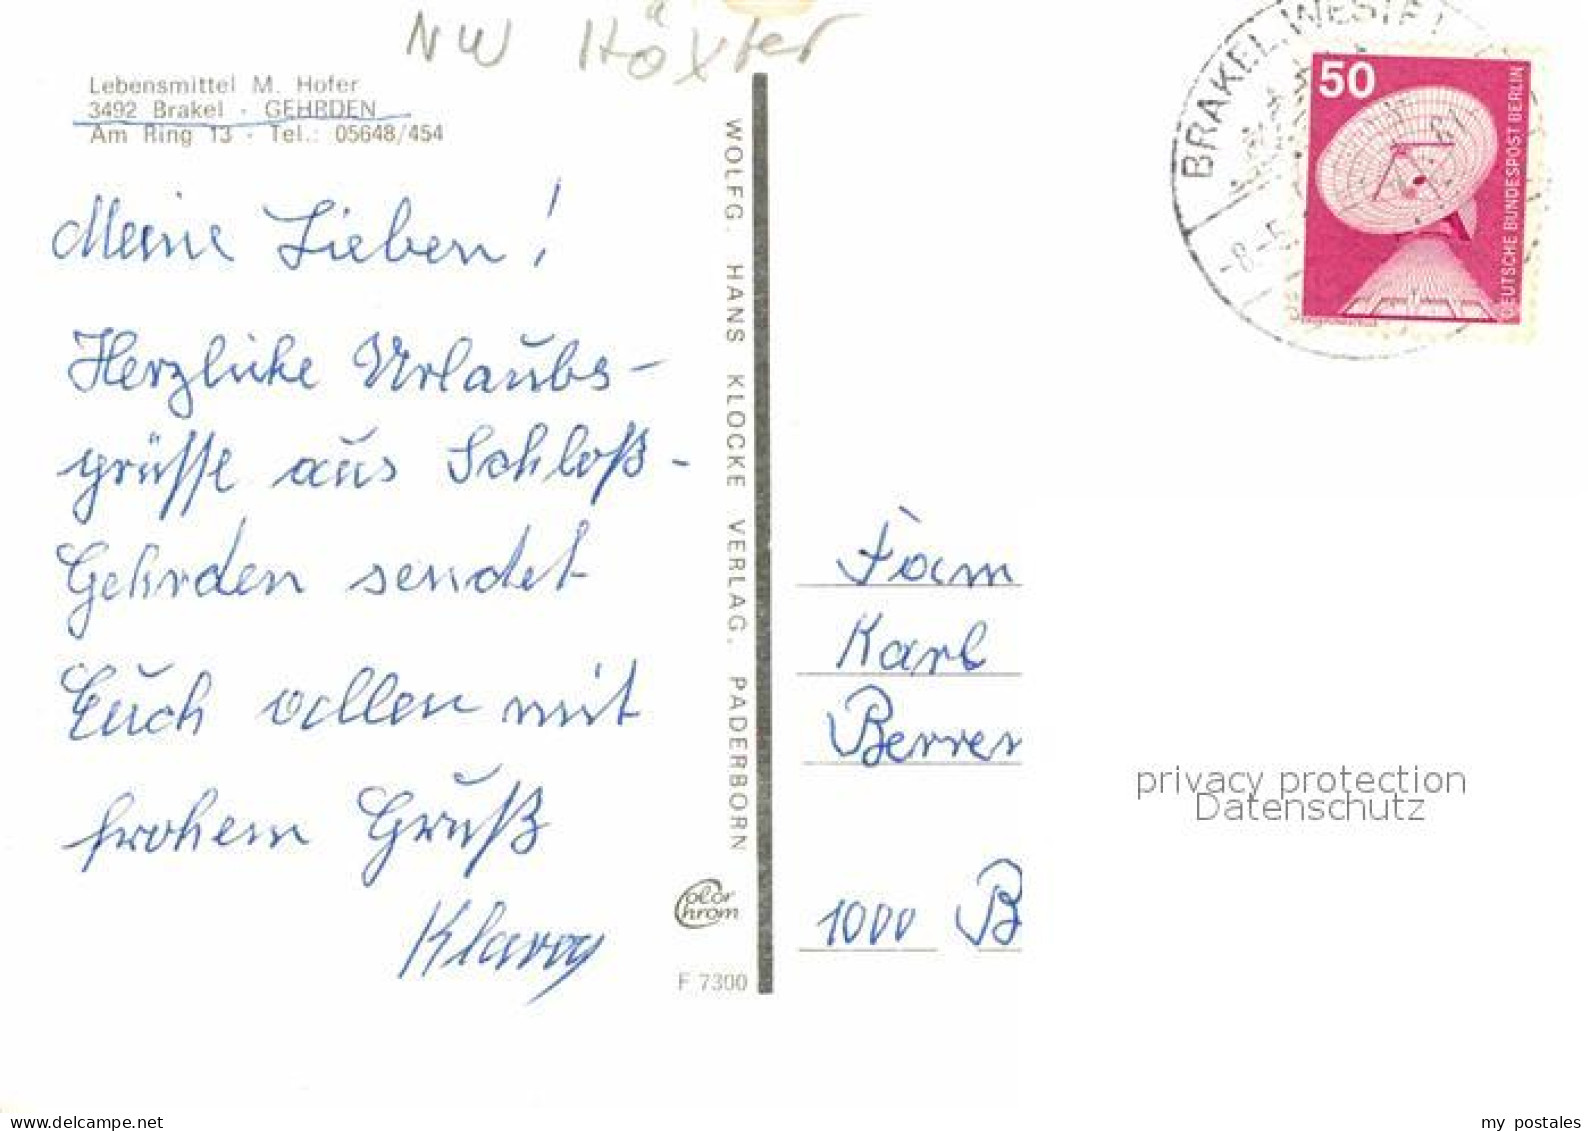 NW Höxter
Lebensmittel M. Hofer
3492 Brakel - GEHRDEN
Am Ring 13 - Tel.: 05648/454
Meine Lieben!
Herzliche Urlaubs-
grüsse aus Schloß-
Gehrden sendet
Euch allen mit
frohem Gruß
WOLFG. HANS KLOCKE VERLAG, PADERBORN
Color Chrom
F 7300
BRAKEL, WESTF
-8.-5.
50
DEUTSCHE BUNDESPOST BERLIN
Fam
Karl
Berrer
1000 B
privacy protection
Datenschutz
my_postales